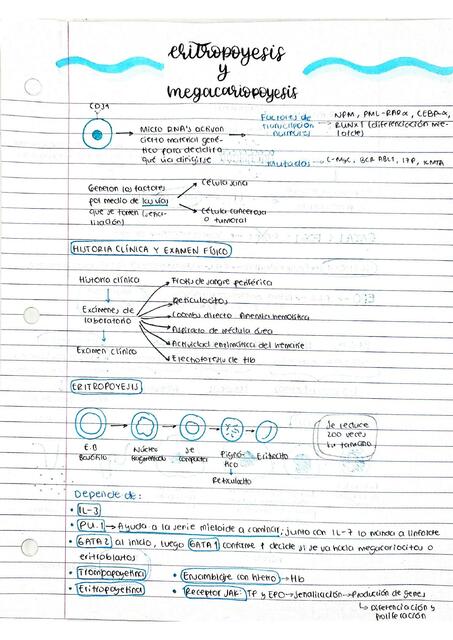 eritropoyesis
y
megacariopoyesis
CD34
Micro RNA's activan
cierto material gené-
tico para decidir a
qué vía dirigirse
Factores de
transcripción
normales
NPM, PML-RARα, CEBPα,
RUNX1 (diferenciación mie-
loide)
Mutados
C-Myc, BCR ABL1, KMTA
Generan los factores
por medio de las vías
que se tomen (
lización)
Célula sana
Célula cancerosa
o tumoral
HISTORIA CLÍNICA Y EXAMEN FÍSICO
Historia clínica
Exámenes de
laboratorio
Examen clínico
Frotis de sangre periférica
Reticulocitos
Coombs directo Anemia hemolítica
Aspirado de médula ósea
Actividad enzimática del hematíe
Electroforesis de Hb
ERITROPOYESIS
E.B
Basófilo
Núcleo
fragmentado
se
compacta
Picnó-
tico
Eritrocito
Reticulocito
Se reduce
200 veces
su tamaño
Depende de:
• IL-3
• PU.1 → Ayuda a la serie mieloide a caminar; junto con IL-7 lo manda a linfoide
• GATA2 al inicio, luego GATA1 confirme + decide si se va hacia megacariocitos o
eritroblastos
• Trombopoyetina
• Ensamblaje con hierro → Hb
• Eritropoyetina
• Receptor JAK: TP y EPO → Señalización → Producción de genes
↳ Diferenciación y
proliferación